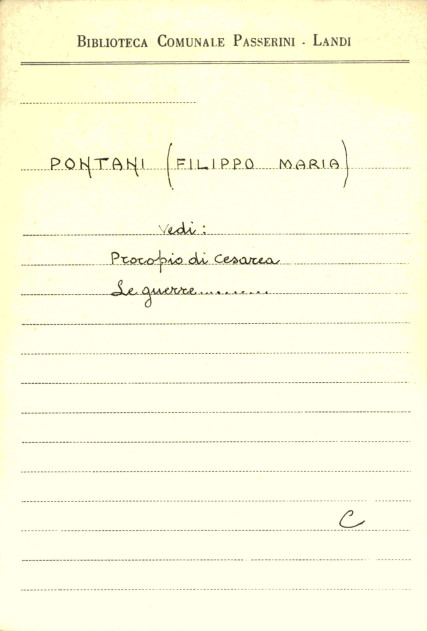 BIBLIOTECA COMUNALE PASSERINI - LANDI
PONTANI (FILIPPO MARIA)
Vedi:
Procopio di Cesarea
Le guerre..........
C